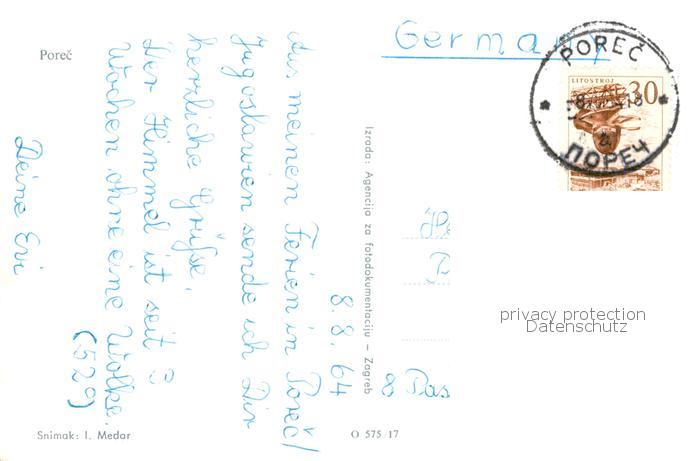 Poreč
8.8.64
Aus meinen Ferien in Poreč /
Jugoslawien sende ich Dir
herzliche Grüße.
Der Himmel ist seit 3
Wochen ohne eine Wolke.
(529)
Deine Evi
Snimak: I. Medar
Izrada: Agencija za fotodokumentaciju – Zagreb
O 575 17
Germany
POREČ
ПОРЕЧ
a
LITOSTROJ
30
privacy protection
Datenschutz
8 Pas